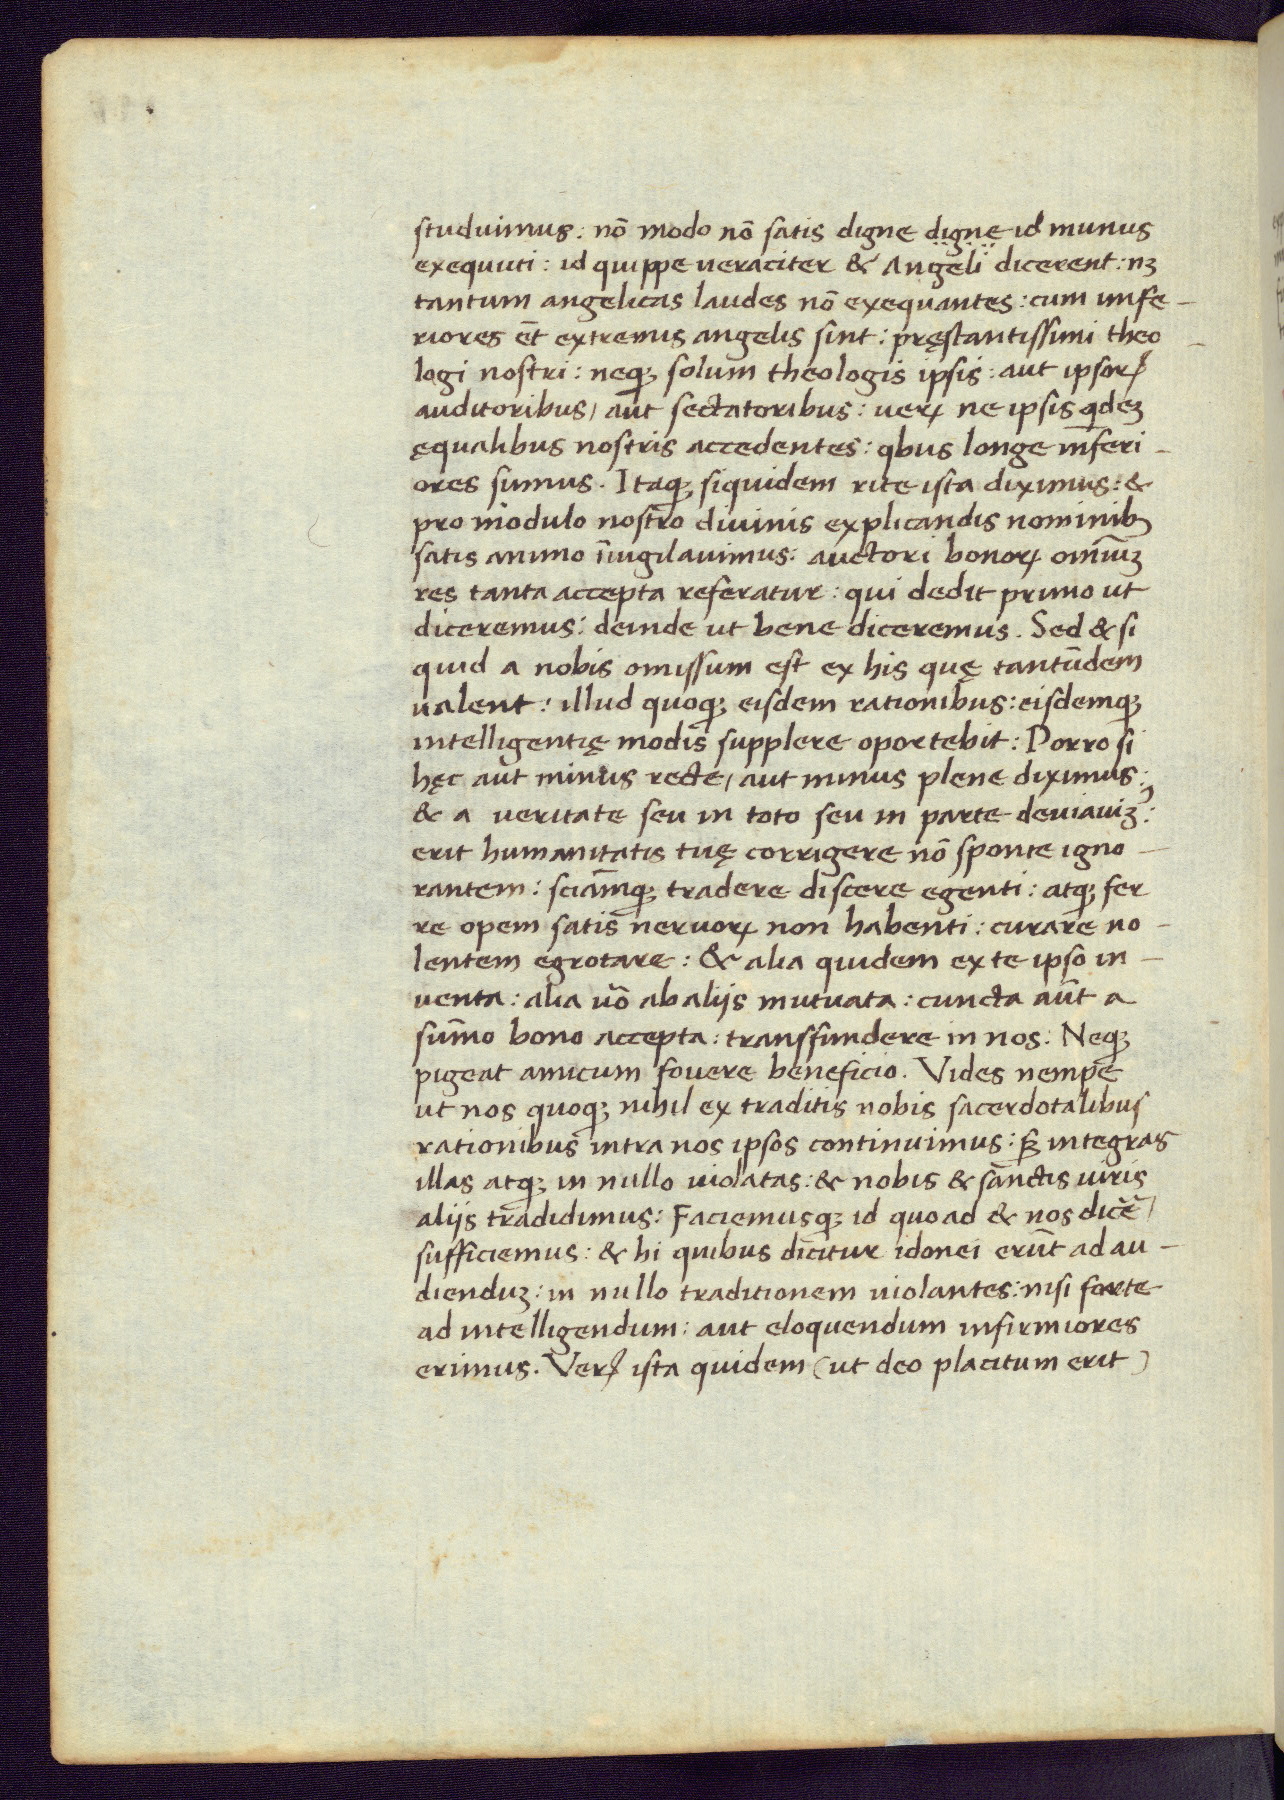 studuimus: nō modo nō satis digne digne id munus
exequuti: id quippe ueraciter & Angeli dicerent: nꝫ
tantum angelicas laudes nō exequantes: cum infe-
riores et̄ extremis angelis sint: pręstantissimi theo-
logi nostri: neqꝫ solum theologis ipsis: aut ipsoꝝ
auditoribus/ aut sectatoribus: ueꝝ ne ipsis qdeꝫ
ęqualibus nostris accedentes: qbus longe inferi-
ores sumus. Itaqꝫ siquidem rite ista diximus: &
pro modulo nostro diuinis explicandis nominibꝫ
satis animo īuigilauimus: auctori bonoꝝ omniūꝫ
res tanta accepta referatur: qui dedit primo ut
diceremus: deinde ut bene diceremus. Sed & si
quid a nobis omissum est ex his quę tantūdem
ualent: illud quoqꝫ eisdem rationibus: eisdemqꝫ
intelligentię modis supplere oportebit: Porro si
hęc aut minus recte/ aut minus plene diximus:
& a ueritate seu in toto seu in parte deuiauiꝫ?:
erit humanitatis tuę corrigere nō sponte igno-
rantem: sciāmqꝫ tradere discere egenti: atqꝫ fer
re opem satis neruoꝝ non habenti: curare no-
lentem egrotare: & alia quidem ex te ipso in-
uenta: alia uō ab alijs mutuata: cuncta aūt a
sūmo bono accepta: transfundere in nos: Neqꝫ
pigeat amicum fouere beneficio. Vides nempe
ut nos quoqꝫ nihil ex traditis nobis sacerdotalibus
rationibus intra nos ipsos continuimus: sꝫ integras
illas atqꝫ in nullo uiolatas: & nobis & sanctis uiris
alijs tradidimus: Faciemusqꝫ id quoad & nos dicē/
sufficiemus: & hi quibus dicitur idonei erūt ad au-
dienduꝫ: in nullo traditionem uiolantes: nisi forte
ad intelligendum: aut eloquendum infirmiores
erimus. Veꝝ ista quidem (ut deo placitum erit)